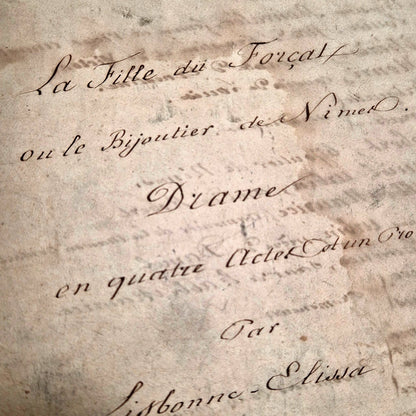 La Fille du Forçat
ou le Bijoutier de Nimes.
Drame
en quatre Actes et un Pro
Par
Lisbonne-Elissa